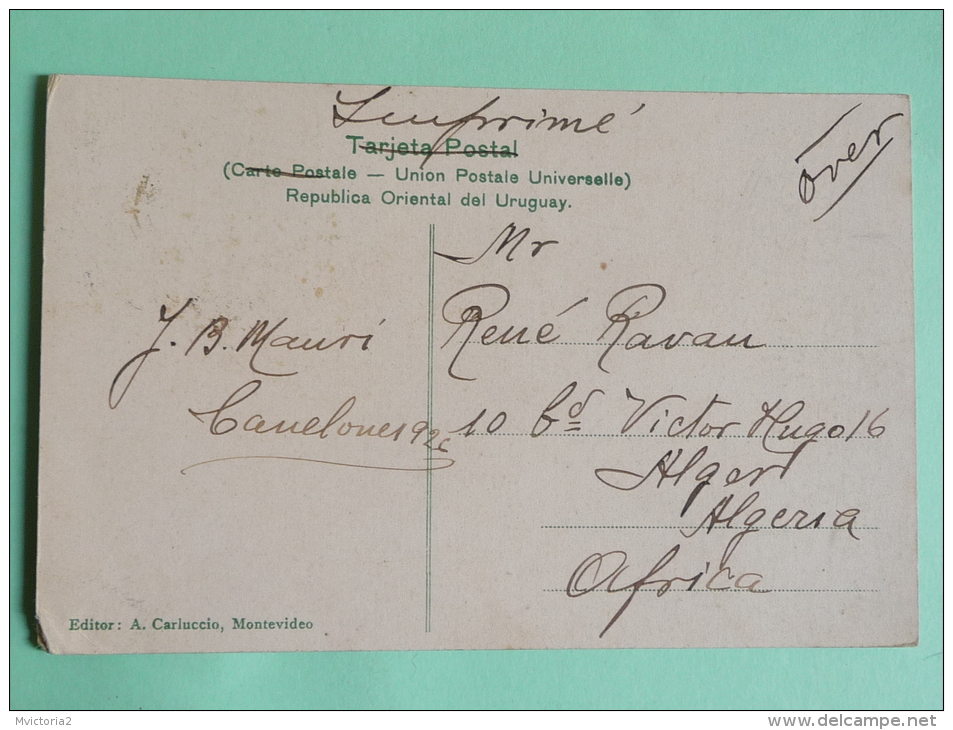 Imprimé
Tarjeta Postal
(Carte Postale — Union Postale Universelle)
Republica Oriental del Uruguay.
over
Mr
René Ravan
10 bd Victor Hugo 16
Alger
Algeria
Africa
J. B. Mauri
Canelones 192
Editor: A. Carluccio, Montevideo
Mvictoria2
www.delcampe.net